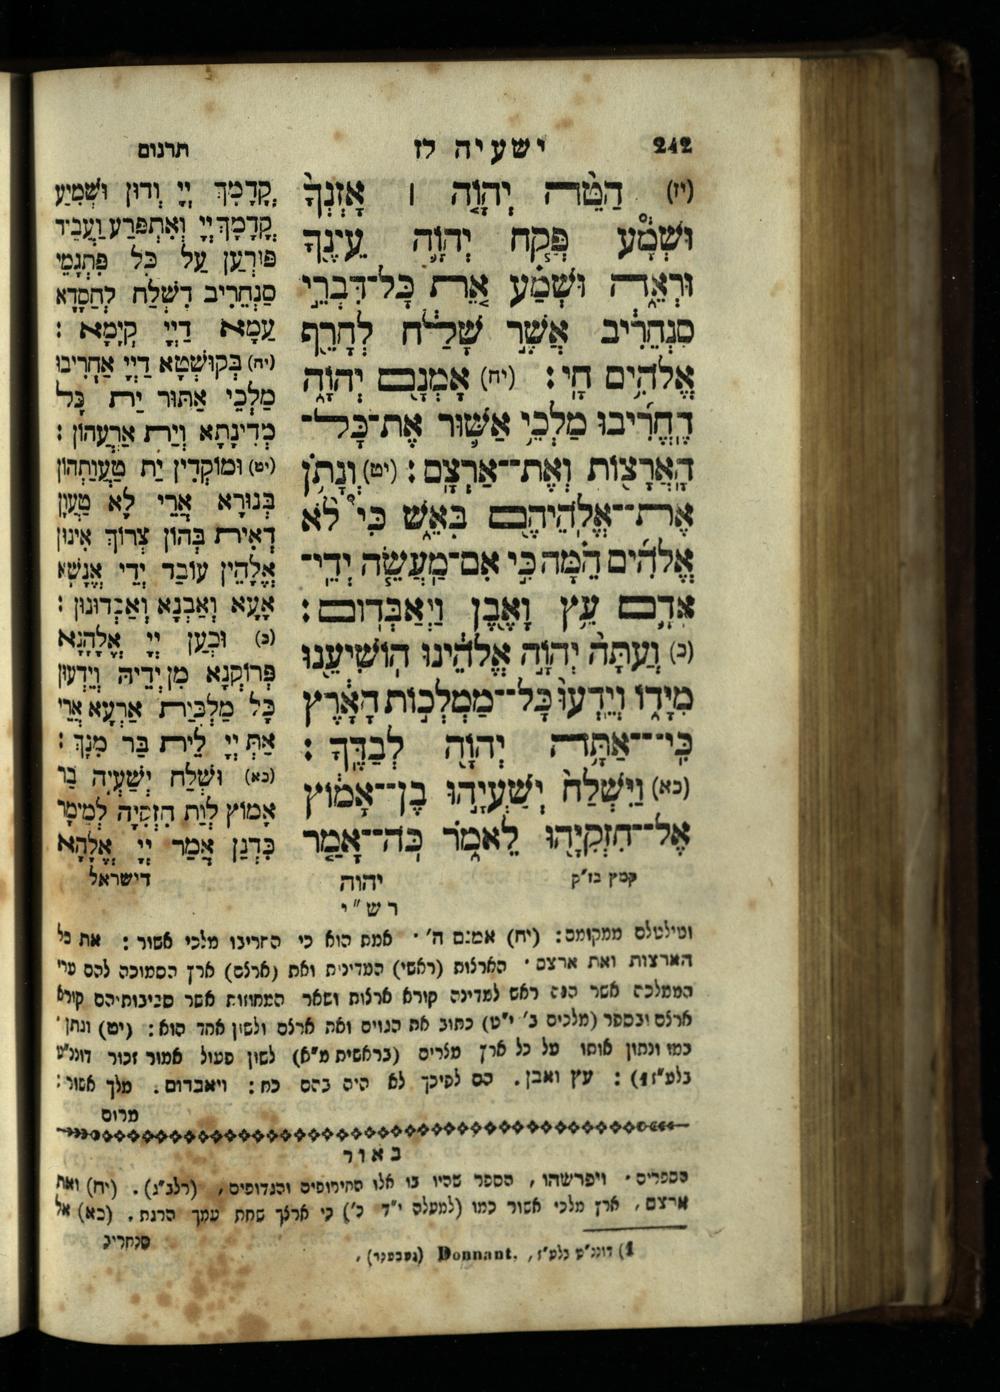 242
ישעיה לז
תרגום
(יז) הַטֵּה יְהוָֹה ׀ אָזְנְךָ
וּשְׁמָע פְּקַח יְהוָֹה עֵינֶךָ
וּרְאֵה וּשְׁמַע אֵת כָּל־דִּבְרֵי
סַנְחֵרִיב אֲשֶׁר שָׁלַח לְחָרֵף
אֱלֹהִים חָי : (יח) אָמְנָם יְהוָֹה
הֶחֱרִיבוּ מַלְכֵי אַשּׁוּר אֶת־כָּל־
הָאֲרָצוֹת וְאֶת־אַרְצָם : (יט) וְנָתֹן
אֶת־אֱלֹהֵיהֶם בָּאֵשׁ כִּי לֹא
אֱלֹהִים הֵמָּה כִּי אִם־מַעֲשֵׂה יְדֵי־
אָדָם עֵץ וָאֶבֶן וַיְאַבְּדוּם :
(כ) וְעַתָּה יְהוָֹה אֱלֹהֵינוּ הוֹשִׁיעֵנוּ
מִיָּדוֹ וְיֵדְעוּ כָּל־מַמְלְכוֹת הָאָרֶץ
כִּי־אַתָּה יְהוָֹה לְבַדֶּךָ :
(כא) וַיִּשְׁלַח יְשַׁעְיָהוּ בֶן־אָמוֹץ
אֶל־חִזְקִיָּהוּ לֵאמֹר כֹּה־אָמַר
קמץ בז״ק
יהוה
קֳדָמָךְ יְיָ וְדוּן וּשְׁמִיעַ
קֳדָמָךְ יְיָ וְאִתְפְּרַע וַעֲבֵיד
פּוּרְעָן עַל כָּל פִּתְגָמֵי
סַנְחֵרִיב דִשְׁלַח לְחַסָדָא
עַמָא דַיְיָ קַיָמָא :
(יח) בְּקוּשְׁטָא דַיְיָ אַחֲרִיבוּ
מַלְכֵי אַתּוּר יַת כָּל
מְדִינָתָא וְיַת אַרְעֲהוֹן :
(יט) וּמוֹקְדִין יַת טַעֲוַתְהוֹן
בְּנוּרָא אֲרֵי לָא טַעֲוָן
דְאִית בְּהוֹן צְרוֹךְ אִינוּן
אֱלָהֵין עוֹבַד יְדֵי אֱנָשָׁא
אָעָא וְאַבְנָא וְאַבְדוּנוּן :
(כ) וּכְעַן יְיָ אֱלָהָנָא
פְּרוֹקְנָא מִן יְדֵיהּ וְיֵדְעוּן
כָּל מַלְכְּוַת אַרְעָא אֲרֵי
אַתְּ יְיָ לֵית בַּר מִנָךְ :
(כא) וּשְׁלַח יְשַׁעְיָה בַר
אָמוֹץ לְוַת חִזְקִיָה לְמֵימָר
כִּדְנַן אֲמַר יְיָ אֱלָהָא
דישראל
רש״י
וטילטלם ממקומם : (יח) אמנם ה׳ . אמת הוא כי החריבו מלכי אשור : את כל
הארצות ואת ארצם . הארצות (ראשי) המדינות ואת (ארצם) ארץ הסמוכה להם ערי
הממלכה אשר הנה ראש למדינה קורא ארצות ושאר המחוזות אשר סביבותיהם קורא
ארצם ובספר (מלכים ב׳ י״ט) כתוב את הגוים ואת ארצם ולשון אחד הוא : (יט) ונתן .
כמו ונתון אותו על כל ארץ מצרים (בראשית מ״א) לשון פעול אמור זכור דוננ״ט
בלע״ז 1) : עץ ואבן . הם לפיכך לא היה בהם כח : ויאבדום . מלך אשור :
מרום
באור
הספרים . ויפרשהו , הספר שהיו בו אלו החירופים והגדופים , (רלב״ג) . (יח) ואת
ארצם , ארץ מלכי אשור כמו (למעלה י״ד כ׳) כי ארצך שחת עמך הרגת . (כא) אל
סנחריב
1) דוננ״ט בלע״ז , Donnant, (געבענד) .